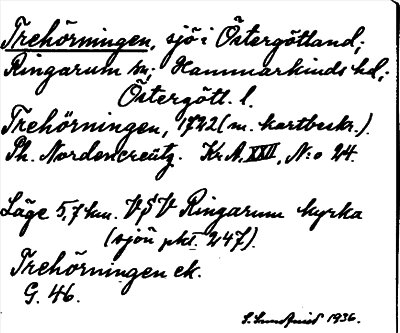 Trehörningen, sjö i Östergötland;
Ringarum sn; Hammarkinds hd;
Östergötl. l.
Trehörningen, 1722 (m. kartbeskr.).
Ph. Nordencreütz. Kr.A. XXII, N:o 24.
Läge 5,7 km. V§V Ringarum kyrka
(sjön pkt 247).
Trehörningen ek.
G. 46.
1936.